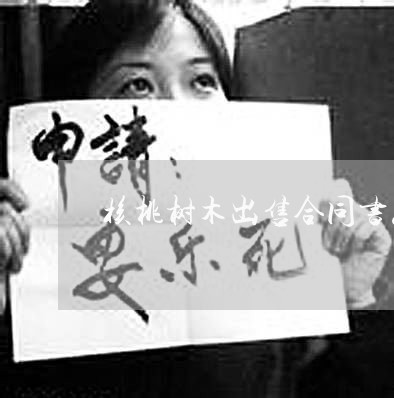 申請：
核桃树木出售合同書
安乐死